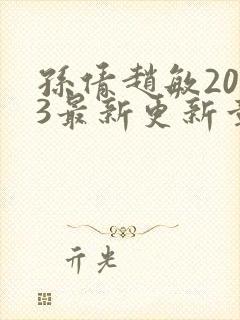 孫倩趙敏20
3最新更新
亓光